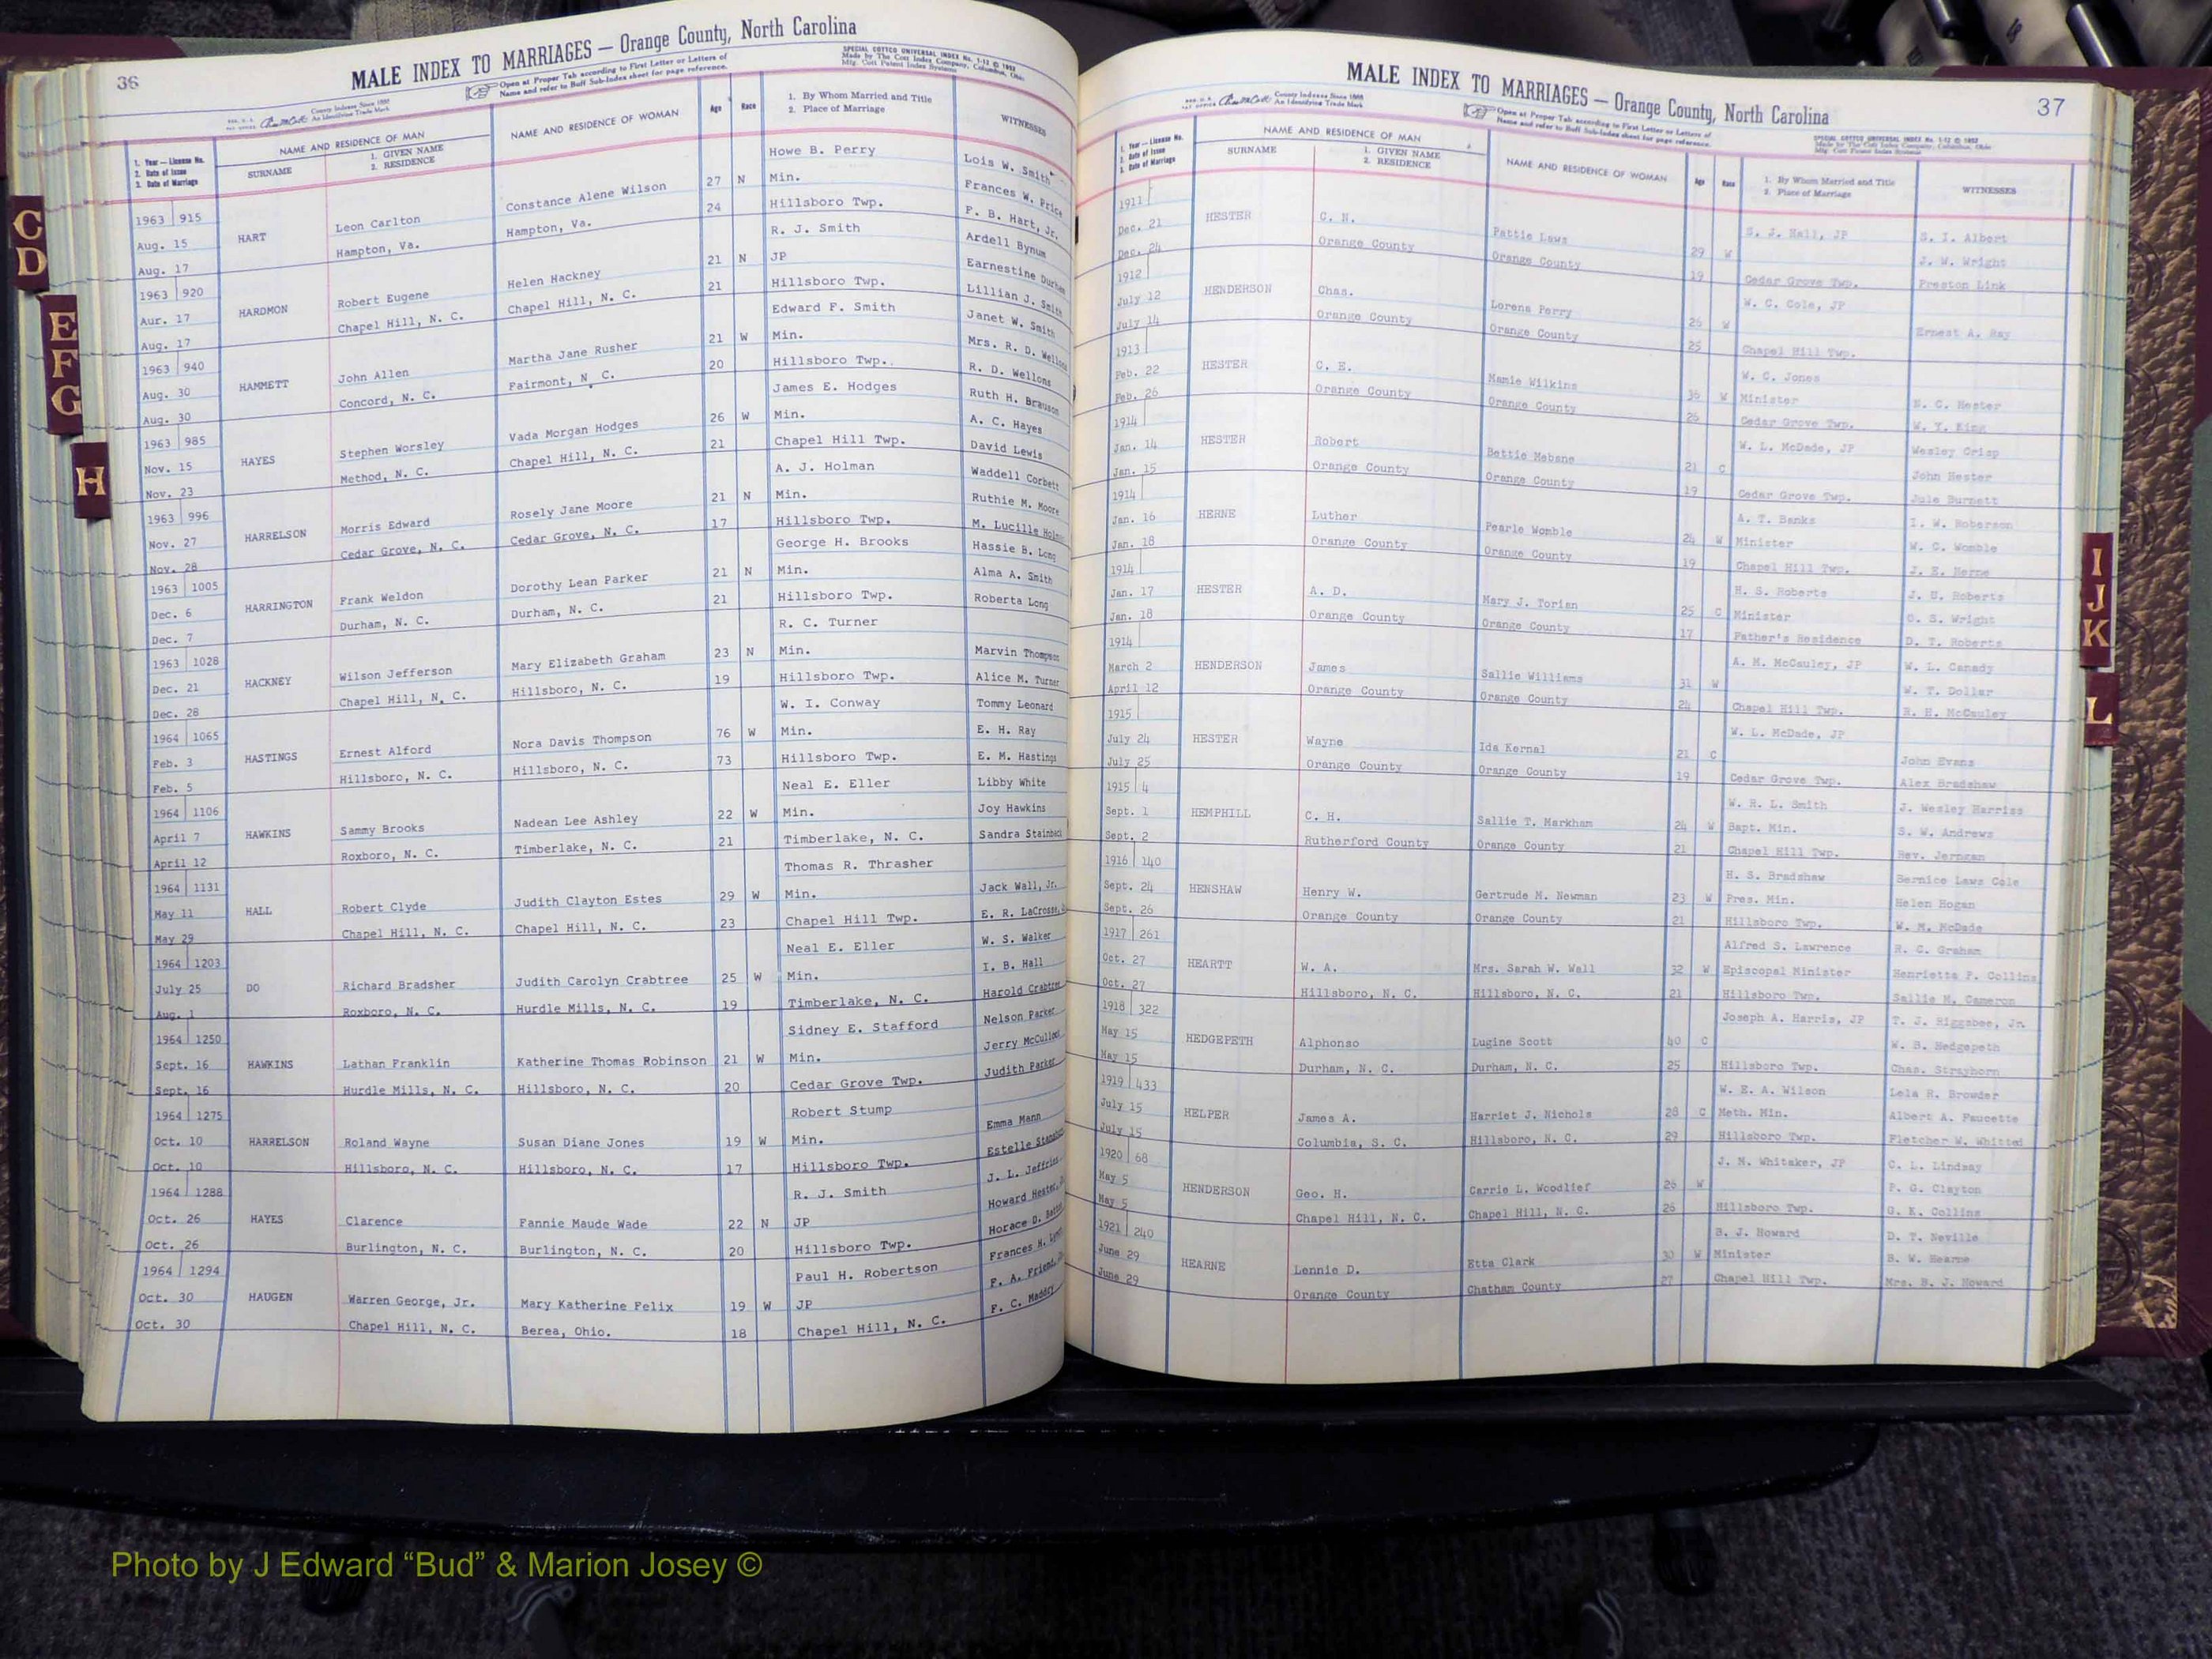 36
MALE INDEX TO MARRIAGES — Orange County, North Carolina
Open at Proper Tab according to First Letter or Letters of
Name and refer to Buff Sub-Index sheet for page reference.
SPECIAL COTTCO UNIVERSAL INDEX No. 1-12 © 1952
Made by The Cott Index Company, Columbus, Ohio
Mfg. Cott Patent Index Systems
County Indexes Since 1888
An Identifying Trade Mark
1. Year — License No.
2. Date of Issue
3. Date of Marriage
NAME AND RESIDENCE OF MAN
SURNAME
1. GIVEN NAME
2. RESIDENCE
NAME AND RESIDENCE OF WOMAN
Age
Race
1. By Whom Married and Title
2. Place of Marriage
WITNESSES
Howe B. Perry Lois W. Smith
1963 915 Constance Alene Wilson 27 N Min. Frances W. Price
Aug. 15 HART Leon Carlton Hampton, Va. 24 Hillsboro Twp. P. B. Hart, Jr.
Aug. 17 Hampton, Va. R. J. Smith Ardell Bynum
1963 920 Helen Hackney 21 N JP Earnestine Durham
Aur. 17 HARDMON Robert Eugene Chapel Hill, N. C. 21 Hillsboro Twp. Lillian J. Smith
Aug. 17 Chapel Hill, N. C. Edward F. Smith Janet W. Smith
1963 940 Martha Jane Rusher 21 W Min. Mrs. R. D. Wellons
Aug. 30 HAMMETT John Allen Fairmont, N C. 20 Hillsboro Twp. R. D. Wellons
Aug. 30 Concord, N. C. James E. Hodges Ruth H. Branson
1963 985 Vada Morgan Hodges 26 W Min. A. C. Hayes
Nov. 15 HAYES Stephen Worsley Chapel Hill, N. C. 21 Chapel Hill Twp. David Lewis
Nov. 23 Method, N. C. A. J. Holman Waddell Corbett
1963 996 Rosely Jane Moore 21 N Min. Ruthie M. Moore
Nov. 27 HARRELSON Morris Edward Cedar Grove, N. C. 17 Hillsboro Twp. M. Lucille
Nov. 28 Cedar Grove, N. C. George H. Brooks Hassie B. Long
1963 1005 Dorothy Lean Parker 21 N Min. Alma A. Smith
Dec. 6 HARRINGTON Frank Weldon Durham, N. C. 21 Hillsboro Twp. Roberta Long
Dec. 7 Durham, N. C. R. C. Turner
1963 1028 Mary Elizabeth Graham 23 N Min. Marvin Thompson
Dec. 21 HACKNEY Wilson Jefferson Hillsboro, N. C. 19 Hillsboro Twp. Alice M. Turner
Dec. 28 Chapel Hill, N. C. W. I. Conway Tommy Leonard
1964 1065 Nora Davis Thompson 76 W Min. E. H. Ray
Feb. 3 HASTINGS Ernest Alford Hillsboro, N. C. 73 Hillsboro Twp. E. M. Hastings
Feb. 5 Hillsboro, N. C. Neal E. Eller Libby White
1964 1106 Nadean Lee Ashley 22 W Min. Joy Hawkins
April 7 HAWKINS Sammy Brooks Timberlake, N. C. 21 Timberlake, N. C. Sandra Stainback
April 12 Roxboro, N. C. Thomas R. Thrasher
1964 1131 Judith Clayton Estes 29 W Min. Jack Wall, Jr.
May 11 HALL Robert Clyde Chapel Hill, N. C. 23 Chapel Hill Twp. E. R. LaCrosse,
May 29 Chapel Hill, N. C. Neal E. Eller W. S. Walker
1964 1203 Judith Carolyn Crabtree 25 W Min. I. B. Hall
July 25 DO Richard Bradsher Hurdle Mills, N. C. 19 Timberlake, N. C. Harold Crabtree
Aug. 1 Roxboro, N. C. Sidney E. Stafford Nelson Parker
1964 1250 Jerry McCulloch
Sept. 16 HAWKINS Lathan Franklin Katherine Thomas Robinson 21 W Min. Judith Parker
Sept. 16 Hurdle Mills, N. C. Hillsboro, N. C. 20 Cedar Grove Twp.
1964 1275 Robert Stump Emma Mann
Oct. 10 HARRELSON Roland Wayne Susan Diane Jones 19 W Min. Estelle
Oct. 10 Hillsboro, N. C. Hillsboro, N. C. 17 Hillsboro Twp. J. L.
1964 1288 R. J. Smith Howard Hester,
Oct. 26 HAYES Clarence Fannie Maude Wade 22 N JP Horace D.
Oct. 26 Burlington, N. C. Burlington, N. C. 20 Hillsboro Twp. Frances H.
1964 1294 Paul H. Robertson F. A. Friend,
Oct. 30 HAUGEN Warren George, Jr. Mary Katherine Felix 19 W JP F. C. Maddry
Oct. 30 Chapel Hill, N. C. Berea, Ohio. 18 Chapel Hill, N. C.
C
D
E
F
G
H
37
MALE INDEX TO MARRIAGES — Orange County, North Carolina
County Indexes Since 1888
An Identifying Trade Mark
Open at Proper Tab according to First Letter or Letters of
Name and refer to Buff Sub-Index sheet for page reference.
SPECIAL COTTCO UNIVERSAL INDEX No. 1-12 © 1952
Made by The Cott Index Company, Columbus, Ohio
Mfg. Cott Patent Index Systems
1. Year — License No.
2. Date of Issue
3. Date of Marriage
NAME AND RESIDENCE OF MAN
SURNAME
1. GIVEN NAME
2. RESIDENCE
NAME AND RESIDENCE OF WOMAN
Age
Race
1. By Whom Married and Title
2. Place of Marriage
WITNESSES
1911 S. J. Hall, JP S. I. Albert
Dec. 21 HESTER C. N. Pattie Laws 29 W J. W. Wright
Dec. 24 Orange County Orange County 19 Cedar Grove Twp. Preston Link
1912 W. C. Cole, JP
July 12 HENDERSON Chas. Lorena Perry 26 W Ernest A. Ray
July 14 Orange County Orange County 25 Chapel Hill Twp.
1913 W. C. Jones
Feb. 22 HESTER C. E. Mamie Wilkins 36 W Minister N. C. Hester
Feb. 26 Orange County Orange County 26 Cedar Grove Twp. W. Y. King
1914 W. L. McDade, JP Wesley Crisp
Jan. 14 HESTER Robert Bettie Mebane 21 C John Hester
Jan. 15 Orange County Orange County 19 Cedar Grove Twp. Jule Burnett
1914 A. T. Banks I. W. Roberson
Jan. 16 HERNE Luther Pearle Womble 24 W Minister W. C. Womble
Jan. 18 Orange County Orange County 19 Chapel Hill Twp. J. E. Herne
1914 H. S. Roberts J. U. Roberts
Jan. 17 HESTER A. D. Mary J. Torian 25 C Minister G. S. Wright
Jan. 18 Orange County Orange County 17 Father's Residence D. T. Roberts
1914 A. M. McCauley, JP W. L. Canady
March 2 HENDERSON James Sallie Williams 31 W W. T. Dollar
April 12 Orange County Orange County 24 Chapel Hill Twp. R. H. McCauley
1915 W. L. McDade, JP
July 24 HESTER Wayne Ida Kernal 21 C John Evans
July 25 Orange County Orange County 19 Cedar Grove Twp. Alex Bradshaw
1915 4 W. H. L. Smith J. Wesley Harriss
Sept. 1 HEMPHILL C. H. Sallie T. Markham 24 W Bapt. Min. S. W. Andrews
Sept. 2 Rutherford County Orange County 21 Chapel Hill Twp. Rev. Jerngan
1916 140 H. S. Bradshaw Bernice Laws Cole
Sept. 24 HENSHAW Henry W. Gertrude M. Newman 23 W Pres. Min. Helen Hogan
Sept. 26 Orange County Orange County 21 Hillsboro Twp. W. M. McDade
1917 261 Alfred S. Lawrence R. C. Graham
Oct. 27 HEARTT W. A. Mrs. Sarah W. Wall 32 W Episcopal Minister Henrietta P. Collins
Oct. 27 Hillsboro, N. C. Hillsboro, N. C. 21 Hillsboro Twp. Sallie M. Cameron
1918 322 Joseph A. Harris, JP T. J. Riggsbee, Jr.
May 15 HEDGEPETH Alphonso Lugine Scott 40 C W. B. Hedgepeth
May 15 Durham, N. C. Durham, N. C. 25 Hillsboro Twp. Chas. Strayhorn
1919 433 W. E. A. Wilson Lela R. Browder
July 15 HELPER James A. Harriet J. Nichols 28 C Meth. Min. Albert A. Faucette
July 15 Columbia, S. C. Hillsboro, N. C. 29 Hillsboro Twp. Fletcher W. Whitted
1920 68 J. M. Whitaker, JP C. L. Lindsay
May 5 HENDERSON Geo. H. Carrie L. Woodlief 26 W P. G. Clayton
May 5 Chapel Hill, N. C. Chapel Hill, N. C. 26 Hillsboro Twp. G. K. Collins
1921 240 B. J. Howard D. T. Neville
June 29 HEARNE Lennie D. Etta Clark 30 W Minister B. W. Hearne
June 29 Orange County Chatham County 27 Chapel Hill Twp. Mrs. B. J. Howard
I
J
K
L
Photo by J Edward “Bud” & Marion Josey ©